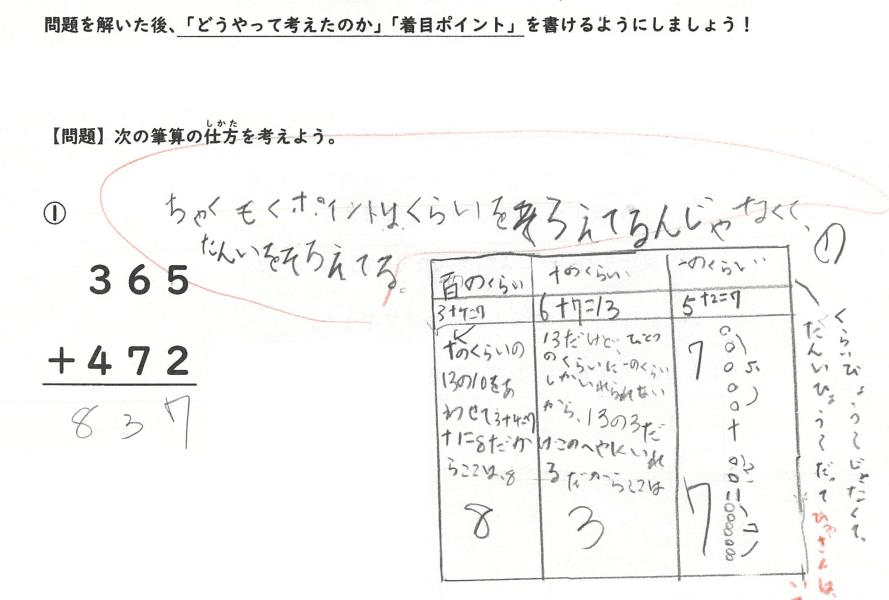 問題を解いた後、「どうやって考えたのか」「着目ポイント」を書けるようにしましょう！
【問題】次の筆算の仕方を考えよう。
しかた
①
365
+472
837
ちゃくもくポイントは、くらいをそろえてるんじゃなくて、
たんいをそろえてる。
①
百のくらい
3+4=7
十のくらいの
13の10をあ
わせて3+4=7
+1に8だか
らここは、8
8
十のくらい
6+7=13
13だけど、ひとつ
のくらいに一のくらい
しかいれられない
から、13の3だ
けこのへやにいれ
るだからここは
3
一のくらい
5+2=7
7
5
+
2
=
7
7
くらいひょうじゃなくて、
たんいひょうだって